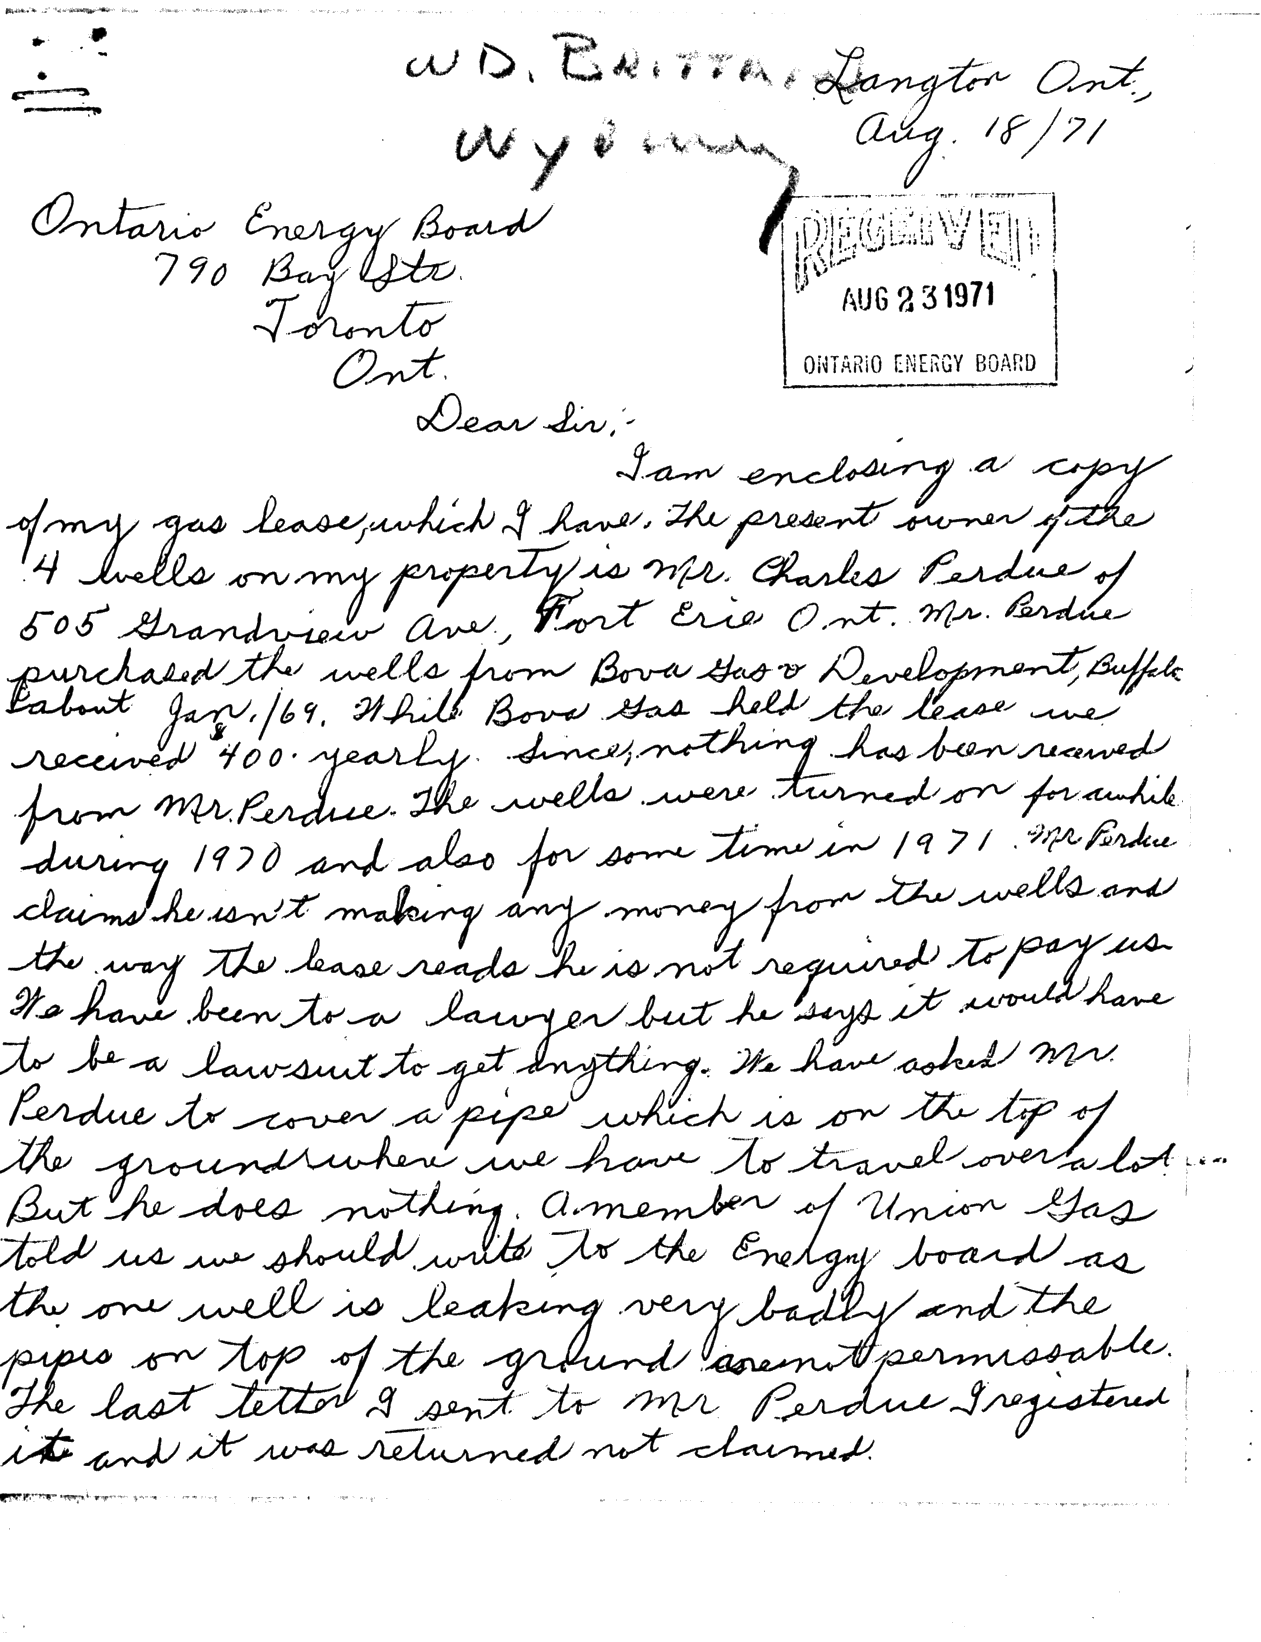 WD. BRITTAIN
Wyoming
Langton Ont.,
Aug. 18/71
Ontario Energy Board
790 Bay Str.
Toronto
Ont.
RECEIVED
AUG 23 1971
ONTARIO ENERGY BOARD
Dear Sir;-
I am enclosing a copy
of my gas lease, which I have. The present owner of the
4 wells on my property is Mr. Charles Perdue of
505 Grandview Ave., Fort Erie Ont. Mr. Perdue
purchased the wells from Bova Gas & Development, Buffalo
about Jan./69. While Bova Gas held the lease we
received $400. yearly. Since, nothing has been received
from Mr. Perdue. The wells were turned on for awhile
during 1970 and also for some time in 1971. Mr Perdue
claims he isn't making any money from the wells and
the way the lease reads he is not required to pay us.
We have been to a lawyer but he says it would have
to be a lawsuit to get anything. We have asked Mr.
Perdue to cover a pipe which is on the top of
the ground where we have to travel over a lot
But he does nothing. A member of Union Gas
told us we should write to the Energy board as
the one well is leaking very badly and the
pipes on top of the ground are not permissable.
The last letter I sent to Mr Perdue I registered
it and it was returned not claimed.